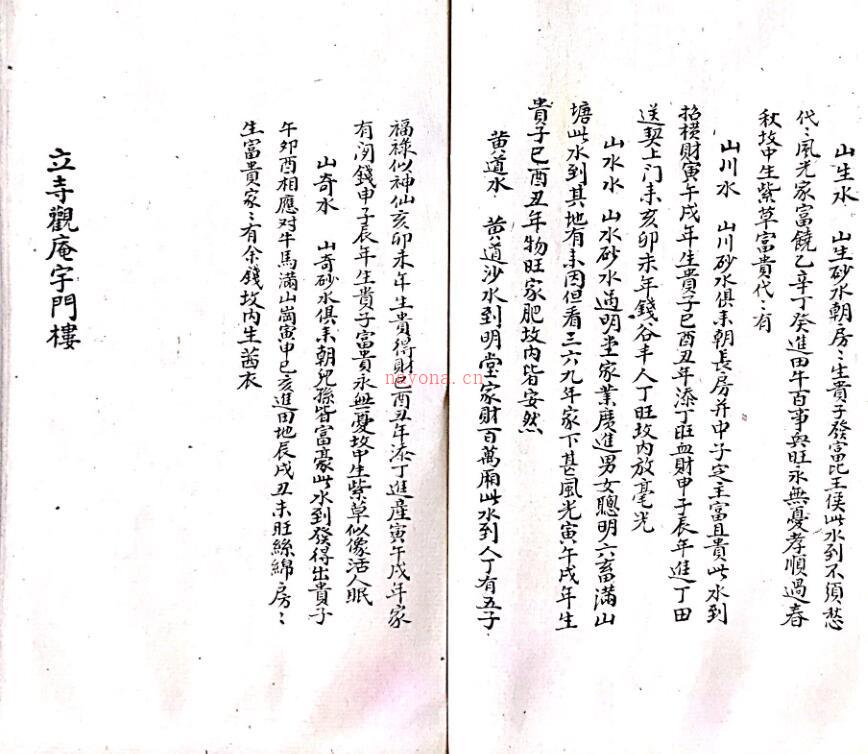 山生水　山生砂水朝房〻生貴子發富比王侯此水到不須愁
代〻風光家富饒乙辛丁癸進田牛百事興旺永無憂孝順過春
秋坟中生紫草富貴代〻有
山川水　山川砂水俱耒朝長房并中子定主富且貴此水到
招横財寅午戌年生貴子巳酉丑年添丁旺血財申子辰年進丁田
送契上门耒亥卯未年錢谷丰人丁旺坟内放毫光
山水水　山水砂水過明堂家業廣進男女聰明六畜滿山
塘此水到其地有耒因但看三六九年家下甚風光寅午戌年生
貴子巳酉丑年物旺家肥坟内皆安然
黄道水　黄道沙水到明堂家財百萬廂此水到人丁有五子
福祿似神仙亥卯未年生貴得財巳酉丑年添丁進産寅午戌年家
有闲錢申子辰年生貴子富貴永無憂坟中生紫草似像活人眠
山奇水　山奇砂水俱耒朝兒孫皆富豪此水到發得出貴子
午卯酉相應对牛馬滿山崗寅申巳亥進田地辰戌丑未旺絲綿房〻
生富貴家〻有余錢坟内生茜衣
立寺觀庵字門樓
nayona.cn